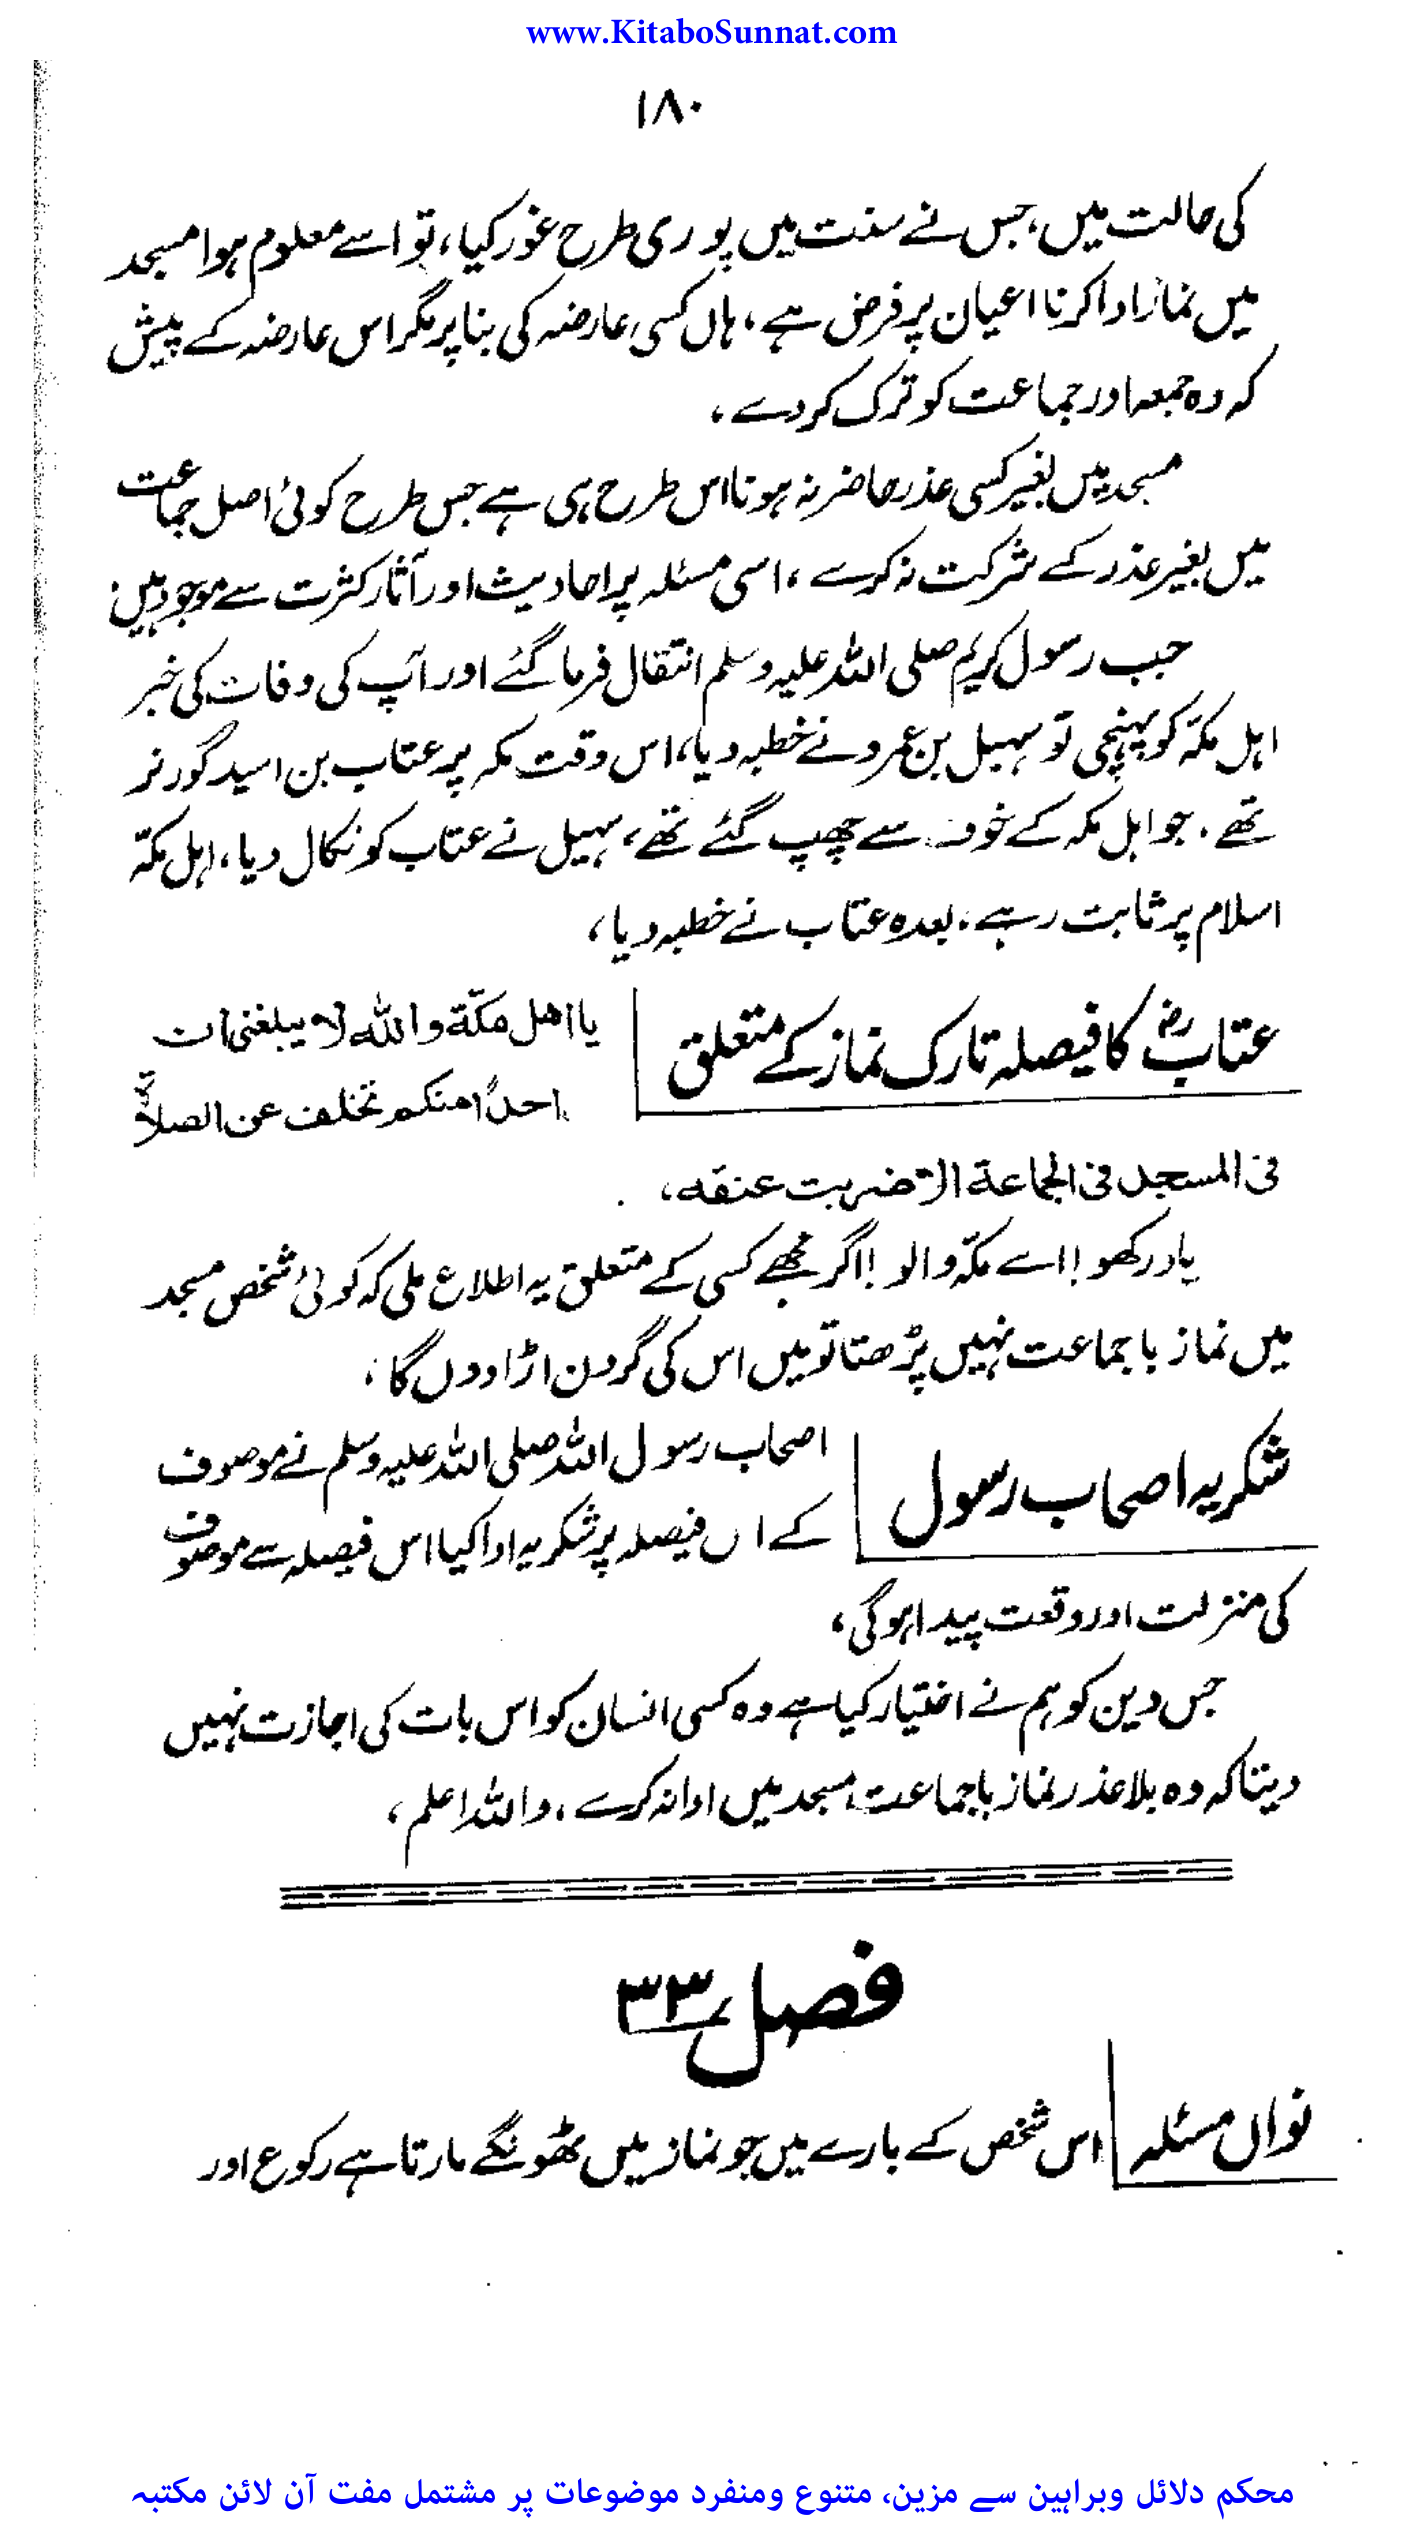 www.KitaboSunnat.com
۱۸۰
کی حالت میں، جس نے سنت میں پوری طرح غور کیا، تو اسے معلوم ہوا مسجد
میں نماز ادا کرنا اعیان پر فرض ہے، ہاں کسی عارضہ کی بنا پر مگر اس عارضہ کے پیش
کہ وہ جمعہ اور جماعت کو ترک کر دے،
مسجد میں بغیر کسی عذر حاضر نہ ہونا اس طرح ہی ہے جس طرح کوئی اصل جماعت
میں بغیر عذر کے شرکت نہ کرے، اسی مسئلہ پر احادیث اور آثار کثرت سے موجود ہیں:
جب رسول کریم صلی اللہ علیہ وسلم انتقال فرما گئے اور آپ کی وفات کی خبر
اہل مکہ کو پہنچی تو سہیل بن عمرو نے خطبہ دیا، اس وقت مکہ پر عتاب بن اسید گورنر
تھے. جو اہل مکہ کے خوف سے چھپ گئے تھے، سہیل نے عتاب کو نکال دیا، اہل مکّہ
اسلام پر ثابت رہے. بعدہ عتاب نے خطبہ دیا،
عتابؓ کا فیصلہ تارک نماز کے متعلق
یا اھل مکّة واللّٰه لا یبلغنی ان
احدًا منکم تخلف عن الصلاة
فی المسجد فی الجماعة الا ضربت عنقه،
یاد رکھو! اے مکّہ والو! اگر مجھے کسی کے متعلق یہ اطلاع ملی کہ کوئی شخص مسجد
میں نماز باجماعت نہیں پڑھتا تو میں اس کی گردن اڑا دوں گا،
شکریہ اصحاب رسول
اصحاب رسول اللہ صلی اللہ علیہ وسلم نے موصوف
کے اس فیصلہ پر شکریہ ادا کیا اس فیصلہ سے موصوف
کی منزلت اور وقعت پیدا ہوگی،
جس دین کو ہم نے اختیار کیا ہے وہ کسی انسان کو اس بات کی اجازت نہیں
دیتا کہ وہ بلا عذر نماز باجماعت مسجد میں ادا نہ کرے، واللہ اعلم،
فصل ۳۳
نواں مسئلہ
اس شخص کے بارے میں جو نماز میں ٹھونگے مارتا ہے رکوع اور
محکم دلائل وبراہین سے مزین، متنوع ومنفرد موضوعات پر مشتمل مفت آن لائن مکتبہ